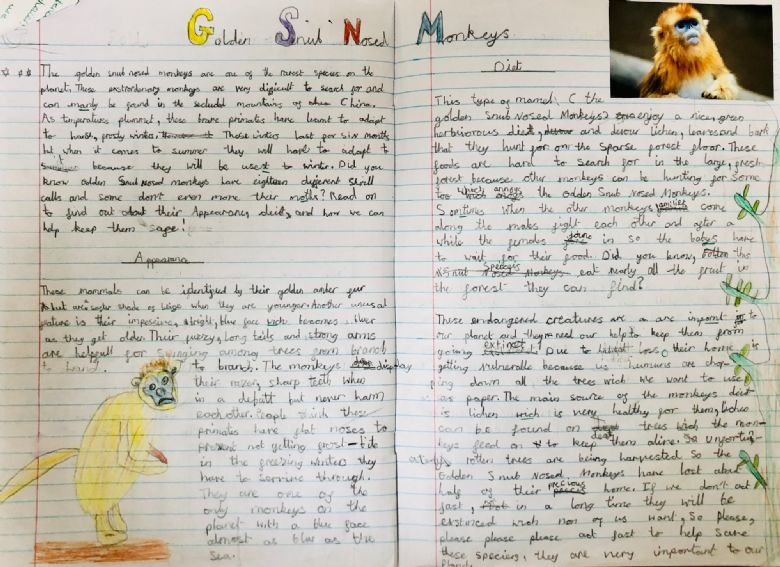 Golden Snub Nosed Monkeys
The golden snub nosed monkeys are one of the rarest species on the
planet. These extraordinary monkeys are very difficult to search for and
can mainly be found in the secluded mountains of China.
As temperatures plummet, these brave primates have learnt to adapt
to harsh, frosty winter. These winters last for six months
but when it comes to summer they will have to adapt to
because they will be used to winter. Did you
know Golden Snub Nosed monkeys have eighteen different shrill
calls and some don't even move their moths? Read on
to find out about their Appearance, diet, and how we can
help keep them safe!
Appearance
These mammals can be identified by their golden amber fur
but are a softer shade of beige when they are younger. Another unusual
feature is their impressive, bright, blue face wich becomes bluer
as they get older. Their furry, long tails and strong arms
are helpfull for swinging among trees from branch
to branch. The monkeys display
their razor, sharp teeth when
in a defutt but never harm
each other. People think these
primates have flat noses to
prevent not getting frost-bite
in the freezing winters they
have to survive through.
They are one of the
only monkeys on the
planet with a blue face
almost as blue as the
sea.
Diet
This type of mamal (the
golden Snub Nosed Monkeys) enjoy a nice, green
herbivorous diet, and devour lichen, leaves and bark
that they hunt for on the sparse forest floor. These
foods are hard to search for in the large, fresh
forest because other monkeys can be hunting for some
too which annoys the Golden Snub Nosed Monkeys.
Somtimes when the other monkeys families come
along the males fight each other and after a
while the females joine in so the babys have
to wait for their food. Did you know, this
species eat nearly all the fruit in
the forest they can find?
These endangered creatures are an important to
our planet and they need our help to keep them from
going extinct. Due to loss their home is
getting vulnerable because us humans are chop-
ping down all the trees wich we want to use
as paper. The main source of the monkeys diet
is lichen wich is very healthy for them, lichen
can be found on dead trees wich the mon-
keys feed on to keep them alive. Unfortun-
atly rotten trees are being harvested so the
Golden Snub Nosed Monkeys have lost about
half of their precious home. If we don't act
fast, in a long time they will be
exstinced wich non of us want, So please,
please please please act fast to help save
these species, they are very important to our
planet.